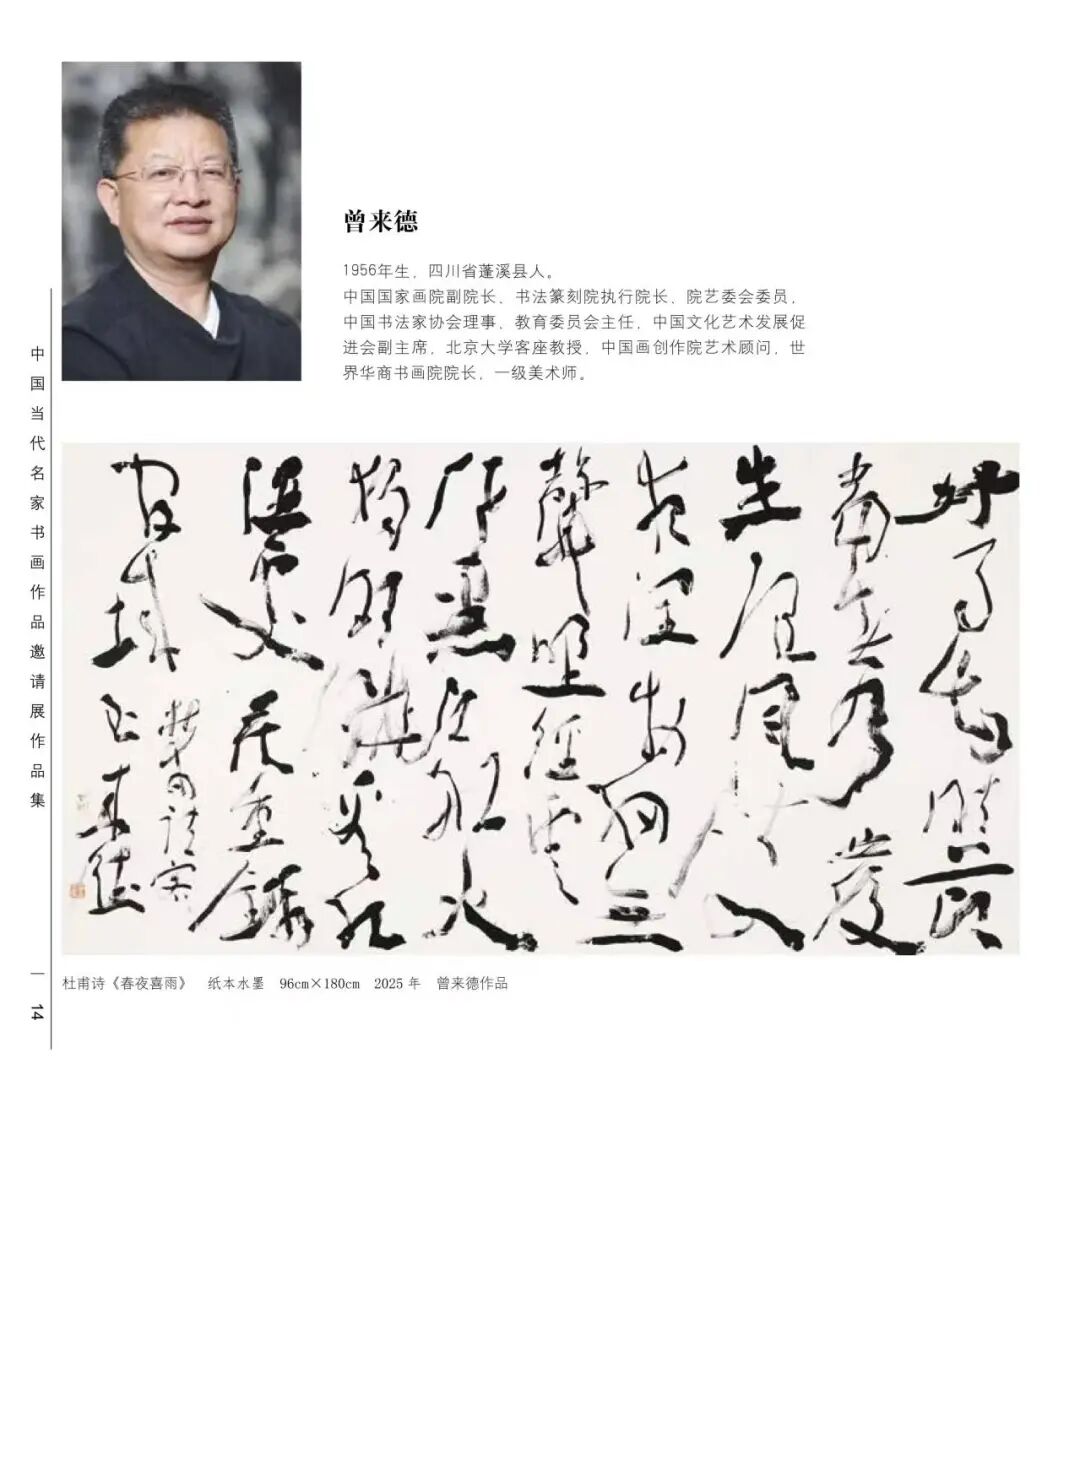 曾来德
1956年生，四川省蓬溪县人。
中国国家画院副院长、书法篆刻院执行院长、院艺委会委员，
中国书法家协会理事、教育委员会主任，中国文化艺术发展促
进会副主席，北京大学客座教授，中国画创作院艺术顾问，世
界华商书画院院长，一级美术师。
好雨知時節
當春乃發
生随風潜入
夜潤物細無
聲野徑雲
俱黑江船火
獨明曉看紅
濕處花重錦
官城
来德
杜甫诗《春夜喜雨》 纸本水墨 96cm×180cm 2025 年 曾来德作品
中国当代名家书画作品邀请展作品集
14